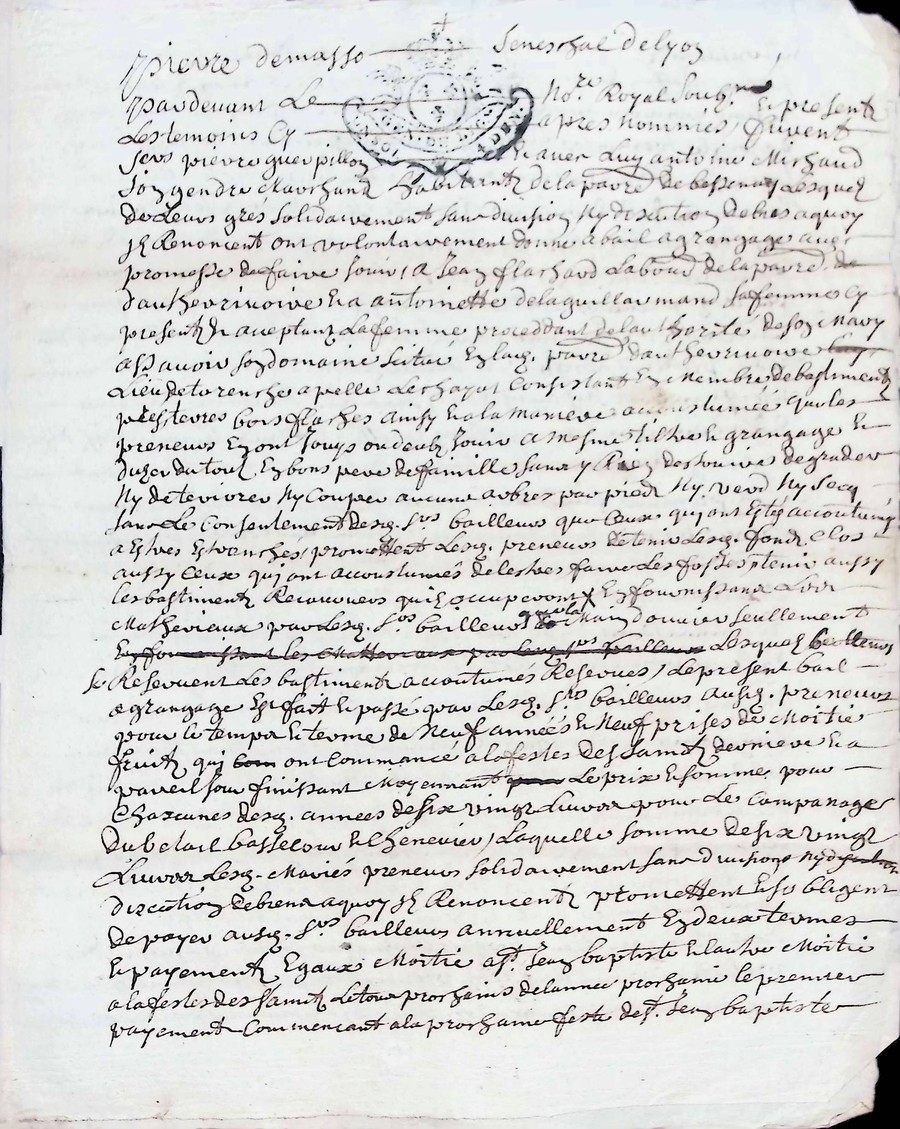 pierre demasso seneschal delyon
pardevant Le no.re Royal soub.ne Et present
Les temoins Cy apres nommés furent
s.rs pierre guerpillon Et avec Luy antoine Michaud
son gendre Marchand habitants de la paroisse de bessenay Lesquels
de Leurs grés solidairement sans division ny discution de biens aquoy
ils Renoncent ont volontairement donné a bail a grangage avec
promesse de faire jouir a Jean flachard Laboureur de la parre de
dautherivoire Et a antoinette delaguillarmand sa femme Cy
presents Et aceptant La femme proceddant de lauthorité de son Mary
assavoir son domaine scitué En lad. parre dautherivoire
Lieu de torenche apellé Le chayot Consistant En Membre de bastiments
prés terres bois flaches ainsy Et a la Maniere accoustumée que Les
preneurs En ont jouys ou deub jouir a mesme tiltre de grangage Et
duser du tout En bons pere de famille sans y Rien destruire degrader
ny deteriorer ny Couper aucuns arbres par pied ny verd ny secq
sans Le Consentement desd. s.rs bailleurs que Ceux qui ont Estés accoutumés
a Estres Esbranchés promettent Lesd. preneurs de tenir Lesd. fonds Clos
aussy Ceux qui ont accoustumés de lestres faire Les fosses tenir aussy
Les bastiments Recouvers quils occuperont En fournissant Les
Matherieaux par Lesd. s.rs bailleurs que la Main douvrier seullement
En fournissant les Matherieaux par Lesd. s.rs bailleurs Lesquels bailleurs
se Reservent Les bastiments accoutumés Reservés, Le present bail
a grangage Est fait Et passé par Lesd. s.rs bailleurs ausd. preneurs
pour le temps Et terme de Neuf années Et Neuf prises de Moitié
fruits qui ont Commancé a la festes des saints derniere Et a
pareil jour finissant Moyennant Le prix Et somme pour
Chacunes desd. années de six vingt Livres pour Le Campanage
du betail basse cour Et Chenevier, Laquelle somme de six vingt
Livres Lesd. Mariés preneurs solidairement sans divisions ny
discution de biens aquoy ils Renoncent promettent Et sobligent
de payer ausd. s.rs bailleurs annuellement En deux termes
Et payements Egaux Moitié a s.t Jean baptiste Et lautre Moitié
a la festes des saints Le tout prochains de lannée prochaine le premier
payement Commencant a la prochaine feste de s.t Jean baptiste